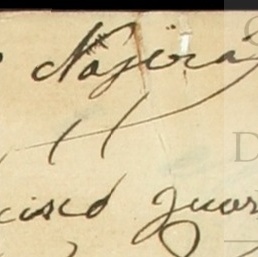 Nogera
cisco Juar
D